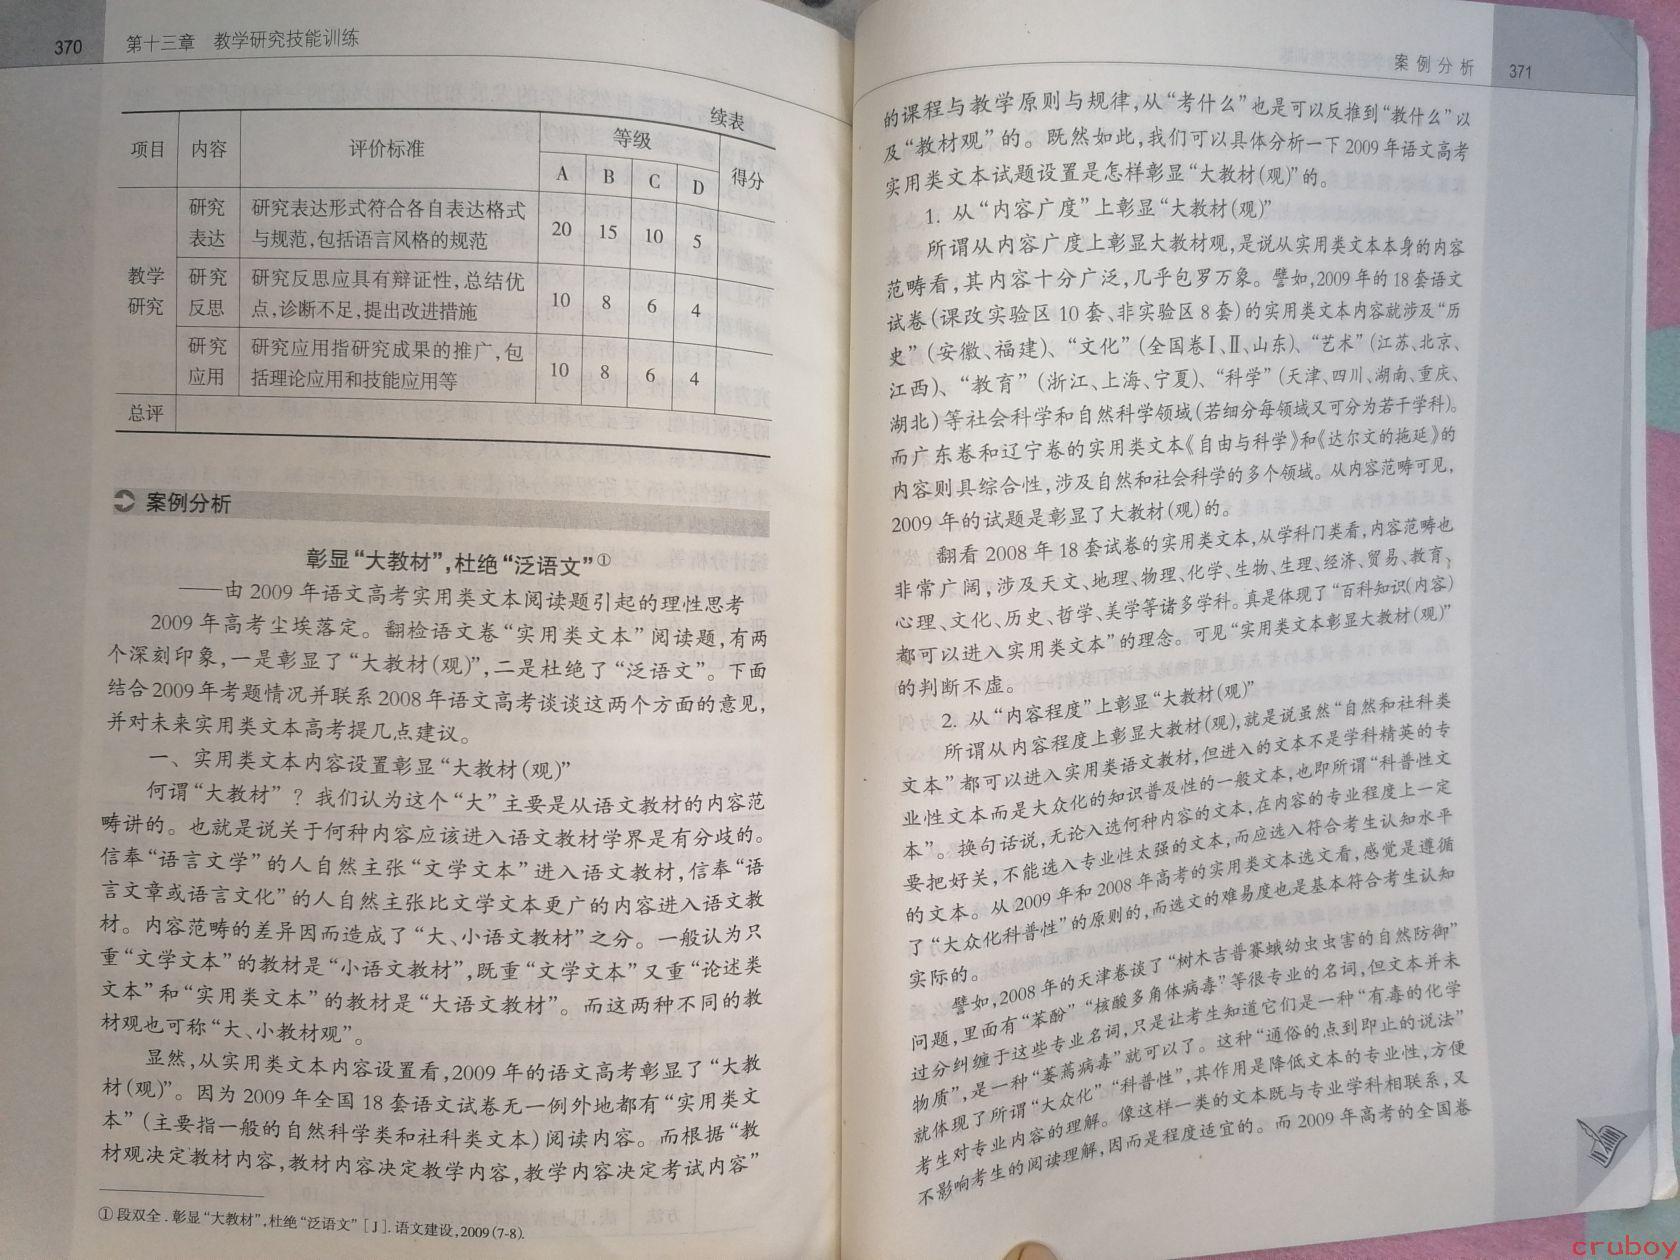 370 第十三章 教学研究技能训练
续表
项目 内容 评价标准 等级 得分
A B C D
教学研究
研究表达 研究表达形式符合各自表达格式
与规范,包括语言风格的规范 20 15 10 5
研究反思 研究反思应具有辩证性,总结优
点,诊断不足,提出改进措施 10 8 6 4
研究应用 研究应用指研究成果的推广,包
括理论应用和技能应用等 10 8 6 4
总评
案例分析
彰显“大教材”,杜绝“泛语文”①
——由2009年语文高考实用类文本阅读题引起的理性思考
2009年高考尘埃落定。翻检语文卷“实用类文本”阅读题,有两
个深刻印象,一是彰显了“大教材(观)”,二是杜绝了“泛语文”。下面
结合2009年考题情况并联系2008年语文高考谈谈这两个方面的意见,
并对未来实用类文本高考提几点建议。
一、实用类文本内容设置彰显“大教材(观)”
何谓“大教材”?我们认为这个“大”主要是从语文教材的内容范
畴讲的。也就是说关于何种内容应该进入语文教材学界是有分歧的。
信奉“语言文学”的人自然主张“文学文本”进入语文教材,信奉“语
言文章或语言文化”的人自然主张比文学文本更广的内容进入语文教
材。内容范畴的差异因而造成了“大、小语文教材”之分。一般认为只
重“文学文本”的教材是“小语文教材”,既重“文学文本”又重“论述类
文本”和“实用类文本”的教材是“大语文教材”。而这两种不同的教
材观也可称“大、小教材观”。
显然,从实用类文本内容设置看,2009年的语文高考彰显了“大教
材(观)”。因为2009年全国18套语文试卷无一例外地都有“实用类文
本”(主要指一般的自然科学类和社科类文本)阅读内容。而根据“教
材观决定教材内容,教材内容决定教学内容,教学内容决定考试内容”
①段双全.彰显“大教材”,杜绝“泛语文”[J].语文建设,2009(7-8).
案例分析 371
的课程与教学原则与规律,从“考什么”也是可以反推到“教什么”以
及“教材观”的。既然如此,我们可以具体分析一下2009年语文高考
实用类文本试题设置是怎样彰显“大教材(观)”的。
1. 从“内容广度”上彰显“大教材(观)”
所谓从内容广度上彰显大教材观,是说从实用类文本本身的内容
范畴看,其内容十分广泛,几乎包罗万象。譬如,2009年的18套语文
试卷(课改实验区10套、非实验区8套)的实用类文本内容就涉及“历
史”(安徽、福建)、“文化”(全国卷Ⅰ、Ⅱ、山东)、“艺术”(江苏、北京、
江西)、“教育”(浙江、上海、宁夏)、“科学”(天津、四川、湖南、重庆、
湖北)等社会科学和自然科学领域(若细分每领域又可分为若干学科)。
而广东卷和辽宁卷的实用类文本《自由与科学》和《达尔文的拖延》的
内容则具综合性,涉及自然和社会科学的多个领域。从内容范畴可见,
2009年的试题是彰显了大教材(观)的。
翻看2008年18套试卷的实用类文本,从学科门类看,内容范畴也
非常广阔,涉及天文、地理、物理、化学、生物、生理、经济、贸易、教育、
心理、文化、历史、哲学、美学等诸多学科。真是体现了“百科知识(内容)
都可以进入实用类文本”的理念。可见“实用类文本彰显大教材(观)”
的判断不虚。
2. 从“内容程度”上彰显“大教材(观)”
所谓从内容程度上彰显大教材(观),就是说虽然“自然和社科类
文本”都可以进入实用类语文教材,但进入的文本不是学科精英的专
业性文本而是大众化的知识普及性的一般文本,也即所谓“科普性文
本”。换句话说,无论入选何种内容的文本,在内容的专业程度上一定
要把好关,不能选入专业性太强的文本,而应选入符合考生认知水平
的文本。从2009年和2008年高考的实用类文本选文看,感觉是遵循
了“大众化科普性”的原则的,而选文的难易度也是基本符合考生认知
实际的。
譬如,2008年的天津卷谈了“树木吉普赛蛾幼虫虫害的自然防御”
问题,里面有“苯酚”“核酸多角体病毒”等很专业的名词,但文本并未
过分纠缠于这些专业名词,只是让考生知道它们是一种“有毒的化学
物质”,是一种“萎蔫病毒”就可以了。这种“通俗的点到即止的说法”
就体现了所谓“大众化”“科普性”,其作用是降低文本的专业性,方便
考生对专业内容的理解。像这样一类的文本既与专业学科相联系,又
不影响考生的阅读理解,因而是程度适宜的。而2009年高考的全国卷
cruboy